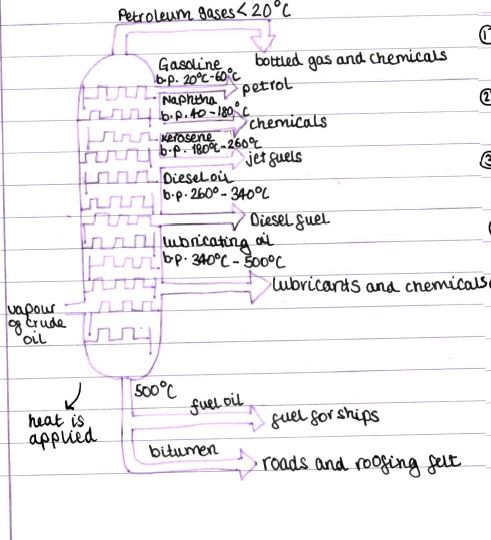 Petroleum gases < 20°C
①
bottled gas and chemicals
Gasoline
b.p. 20°C-60°C
petrol
②
Naphtha
b.p. 40-180°C
chemicals
kerosene
b.p. 180°C-260°C
jet fuels
③
Diesel oil
b.p. 260°- 340°C
Diesel fuel
lubricating oil
b.p. 340°C - 500°C
lubricants and chemicals
vapour
of crude
oil
500°C
heat is
applied
fuel oil
fuel for ships
bitumen
roads and roofing felt